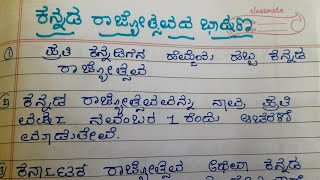 classmate
ಕನ್ನಡ ರಾಜ್ಯೋತ್ಸವದ ಭಾಷಣ
① ಪ್ರತಿ ಕನ್ನಡಿಗನ ಹೆಮ್ಮೆಯ ಹಬ್ಬ ಕನ್ನಡ
ರಾಜ್ಯೋತ್ಸವ
② ಕನ್ನಡ ರಾಜ್ಯೋತ್ಸವವನ್ನು ನಾವು ಪ್ರತಿ
ವರ್ಷ ನವೆಂಬರ 1 ರಂದು ಆಚರಣೆ
ಮಾಡುತ್ತೇವೆ.
③ ಕರ್ನಾಟಕ ರಾಜ್ಯೋತ್ಸವ ಅಥವಾ ಕನ್ನಡ